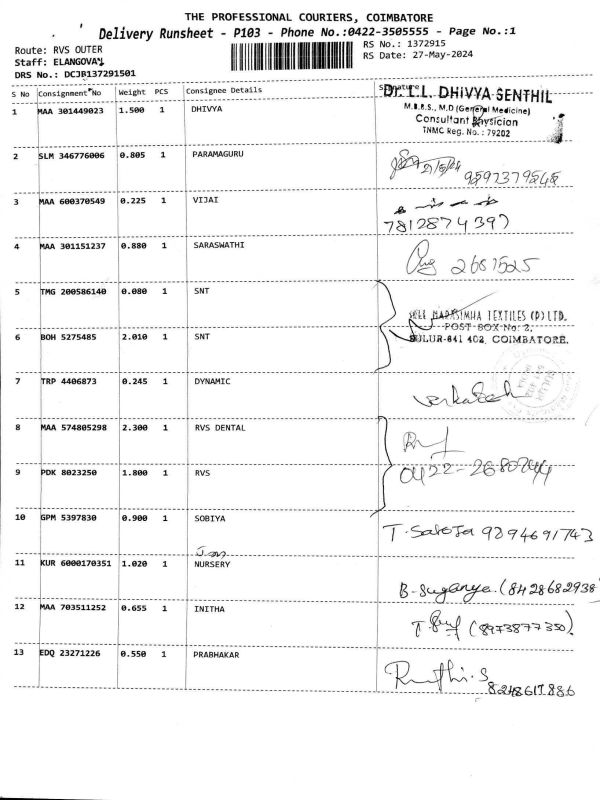 THE PROFESSIONAL COURIERS, COIMBATORE
Delivery Runsheet - P103 - Phone No.:0422-3505555 - Page No.:1
Route: RVS OUTER
RS No.: 1372915
Staff: ELANGOVAN
RS Date: 27-May-2024
DRS No.: DCJB137291501
S No Consignment No Weight PCS Consignee Details Signature
1 MAA 301449023 1.500 1 DHIVYA
Dr. L.L. DHIVYA SENTHIL
M.B.B.S., M.D (General Medicine)
Consultant Physician
TNMC Reg. No. : 79202
2 SLM 346776006 0.805 1 PARAMAGURU
9597379545
3 MAA 600370549 0.225 1 VIJAI
7812874397
4 MAA 301151237 0.880 1 SARASWATHI
2687525
5 TMG 200586140 0.080 1 SNT
SREE NARASIMHA TEXTILES (P) LTD.
POST BOX No: 2,
SULUR-641 402, COIMBATORE.
6 BOH 5275485 2.010 1 SNT
7 TRP 4406873 0.245 1 DYNAMIC
8 MAA 574805298 2.300 1 RVS DENTAL
9 PDK 8023250 1.800 1 RVS
10 GPM 5397830 0.900 1 SOBIYA T. Saroja 9894691743
11 KUR 6000170351 1.020 1 NURSERY
B. Suganya. (8428682938)
12 MAA 703511252 0.655 1 INITHA
(8973877350).
13 EDQ 23271226 0.550 1 PRABHAKAR
8248617886